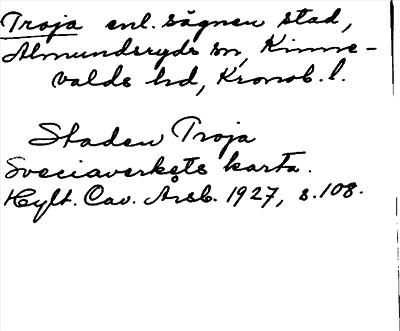 Troja enl. sägnen stad,
Almundsryds sn, Kinne-
valds hd, Kronob. l.
Staden Troja
Sveciaverkets karta.
Hylt. Cav. Årsb. 1927, s. 108.